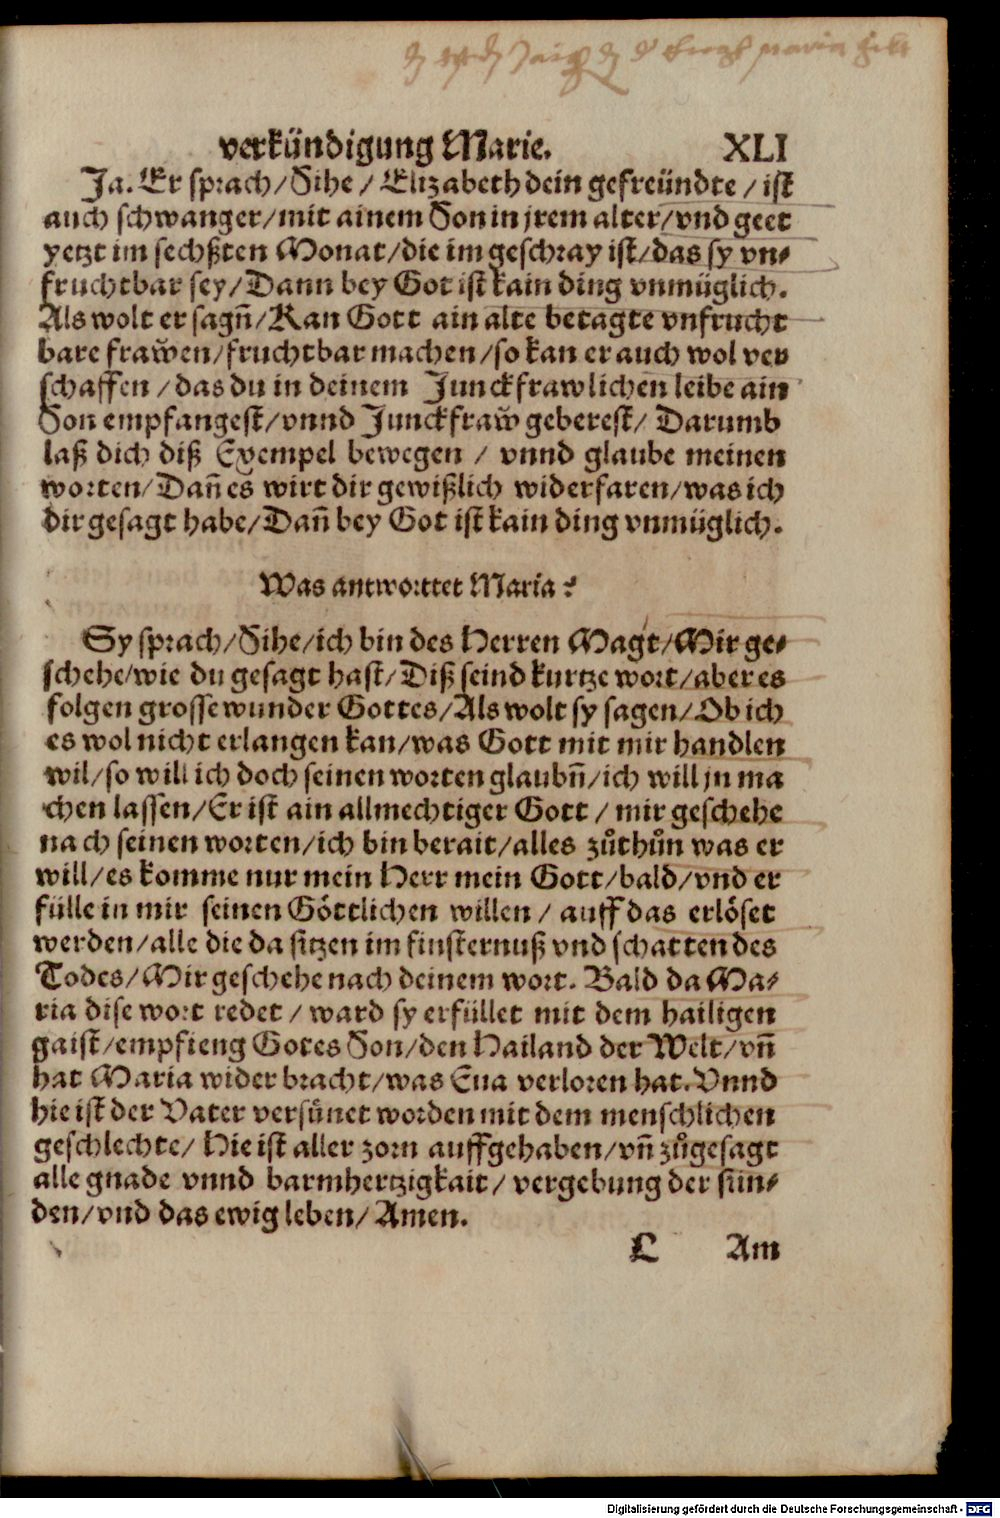 verkündigung Marie. XLI
Ja. Er sprach/Sihe/Elizabeth dein gefreündte/ist
auch schwanger/mit ainem Son in jrem alter/vnd geet
yetzt im sechßten Monat/die im geschray ist/das sy vn⸗
fruchtbar sey/Dann bey Got ist kain ding vnmüglich.
Als wolt er sagn̄/Kan Gott ain alte betagte vnfrucht
bare frawen/fruchtbar machen/so kan er auch wol ver
schaffen/das du in deinem Junckfrawlichen leibe ain
Son empfangest/vnnd Junckfraw geberest/Darumb
laß dich diß Exempel bewegen/vnnd glaube meinen
worten/Dañ es wirt dir gewißlich widerfaren/was ich
dir gesagt habe/Dañ bey Got ist kain ding vnmüglich.
Was antworttet Maria?
Sy sprach/Sihe/ich bin des Herren Magt/Mir ge⸗
schehe/wie du gesagt hast/Diß seind kurtze wort/aber es
folgen grosse wunder Gottes/Als wolt sy sagen/Ob ich
es wol nicht erlangen kan/was Gott mit mir handlen
wil/so will ich doch seinen worten glaubn̄/ich will jn ma
chen lassen/Er ist ain allmechtiger Gott/mir geschehe
nach seinen worten/ich bin berait/alles zůthůn was er
will/es komme nur mein Herr mein Gott/bald/vnd er
fülle in mir seinen Göttlichen willen/auff das erlöset
werden/alle die da sitzen im finsternuß vnd schatten des
Todes/Mir geschehe nach deinem wort. Bald da Ma⸗
ria dise wort redet/ward sy erfüllet mit dem hailigen
gaist/empfieng Gotes Son/den Hailand der Welt/vñ
hat Maria wider bracht/was Eua verloren hat. Vnnd
hie ist der Vater versünet worden mit dem menschlichen
geschlechte/Hie ist aller zorn auffgehaben/vñ zůgesagt
alle gnade vnnd barmhertzigkait/vergebung der sün⸗
den/vnd das ewig leben/Amen.
L Am
Digitalisierung gefördert durch die Deutsche Forschungsgemeinschaft - DFG